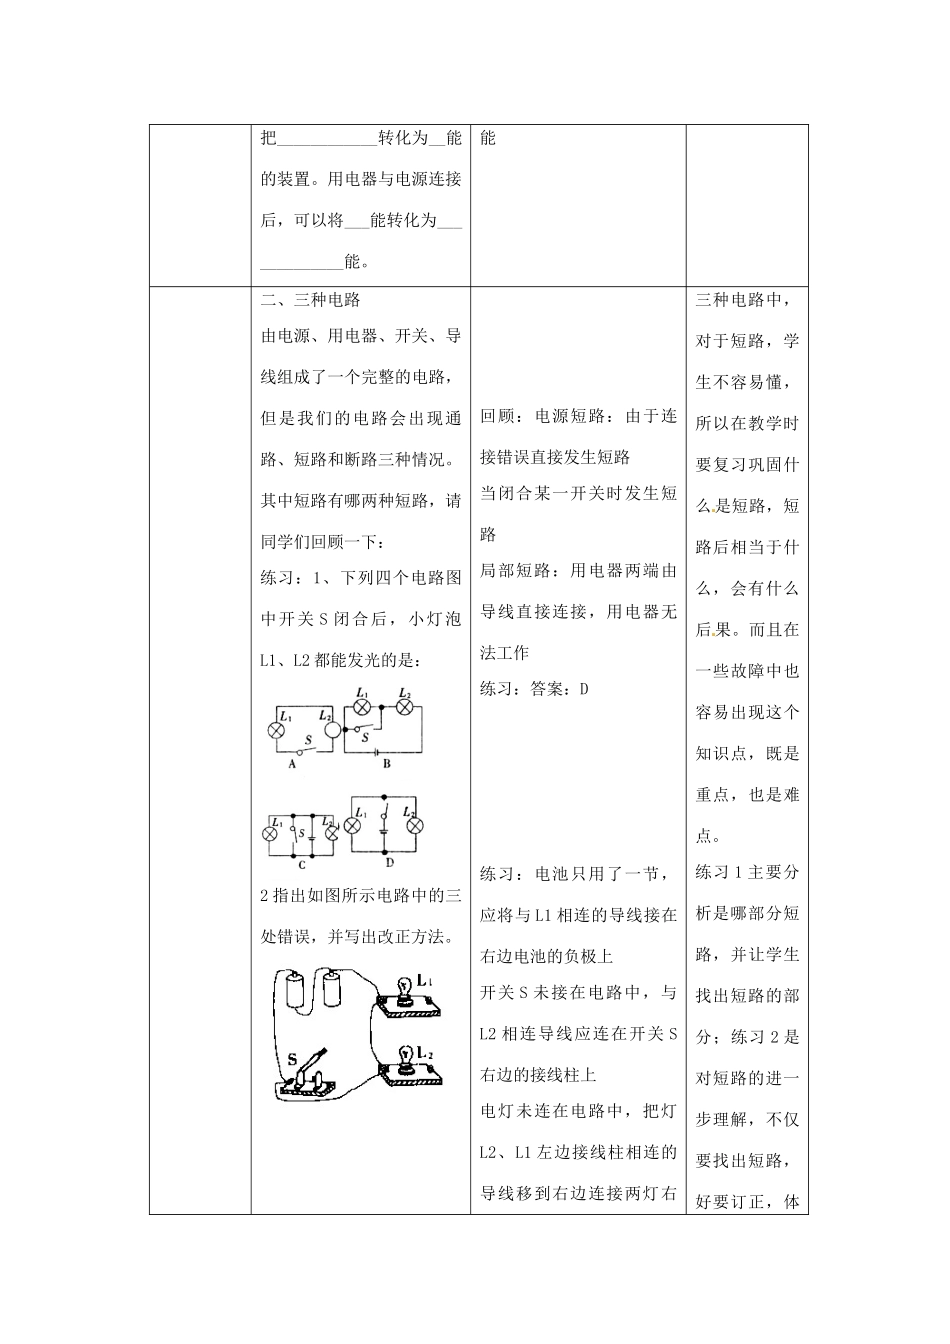 把____________转化为__能
的装置。用电器与电源连接
后，可以将___能转化为___
__________能。
能
二、三种电路
由电源、用电器、开关、导
线组成了一个完整的电路，
但是我们的电路会出现通
路、短路和断路三种情况。
其中短路有哪两种短路，请
同学们回顾一下：
练习：1、下列四个电路图
中开关 S 闭合后，小灯泡
L1、L2 都能发光的是：
L1 L2 S A
L1 L2 S B
L1 S L2 C
L1 L2 D
2 指出如图所示电路中的三
处错误，并写出改正方法。
L1
S L2
回顾：电源短路：由于连
接错误直接发生短路
当闭合某一开关时发生短
路
局部短路：用电器两端由
导线直接连接，用电器无
法工作
练习：答案：D
练习：电池只用了一节，
应将与 L1 相连的导线接在
右边电池的负极上
开关 S 未接在电路中，与
L2 相连导线应连在开关 S
右边的接线柱上
电灯未连在电路中，把灯
L2、L1 左边接线柱相连的
导线移到右边连接两灯右
三种电路中，
对于短路，学
生不容易懂，
所以在教学时
要复习巩固什
么是短路，短
路后相当于什
么，会有什么
后果。而且在
一些故障中也
容易出现这个
知识点，既是
重点，也是难
点。
练习 1 主要分
析是哪部分短
路，并让学生
找出短路的部
分；练习 2 是
对短路的进一
步理解，不仅
要找出短路，
好要订正，体